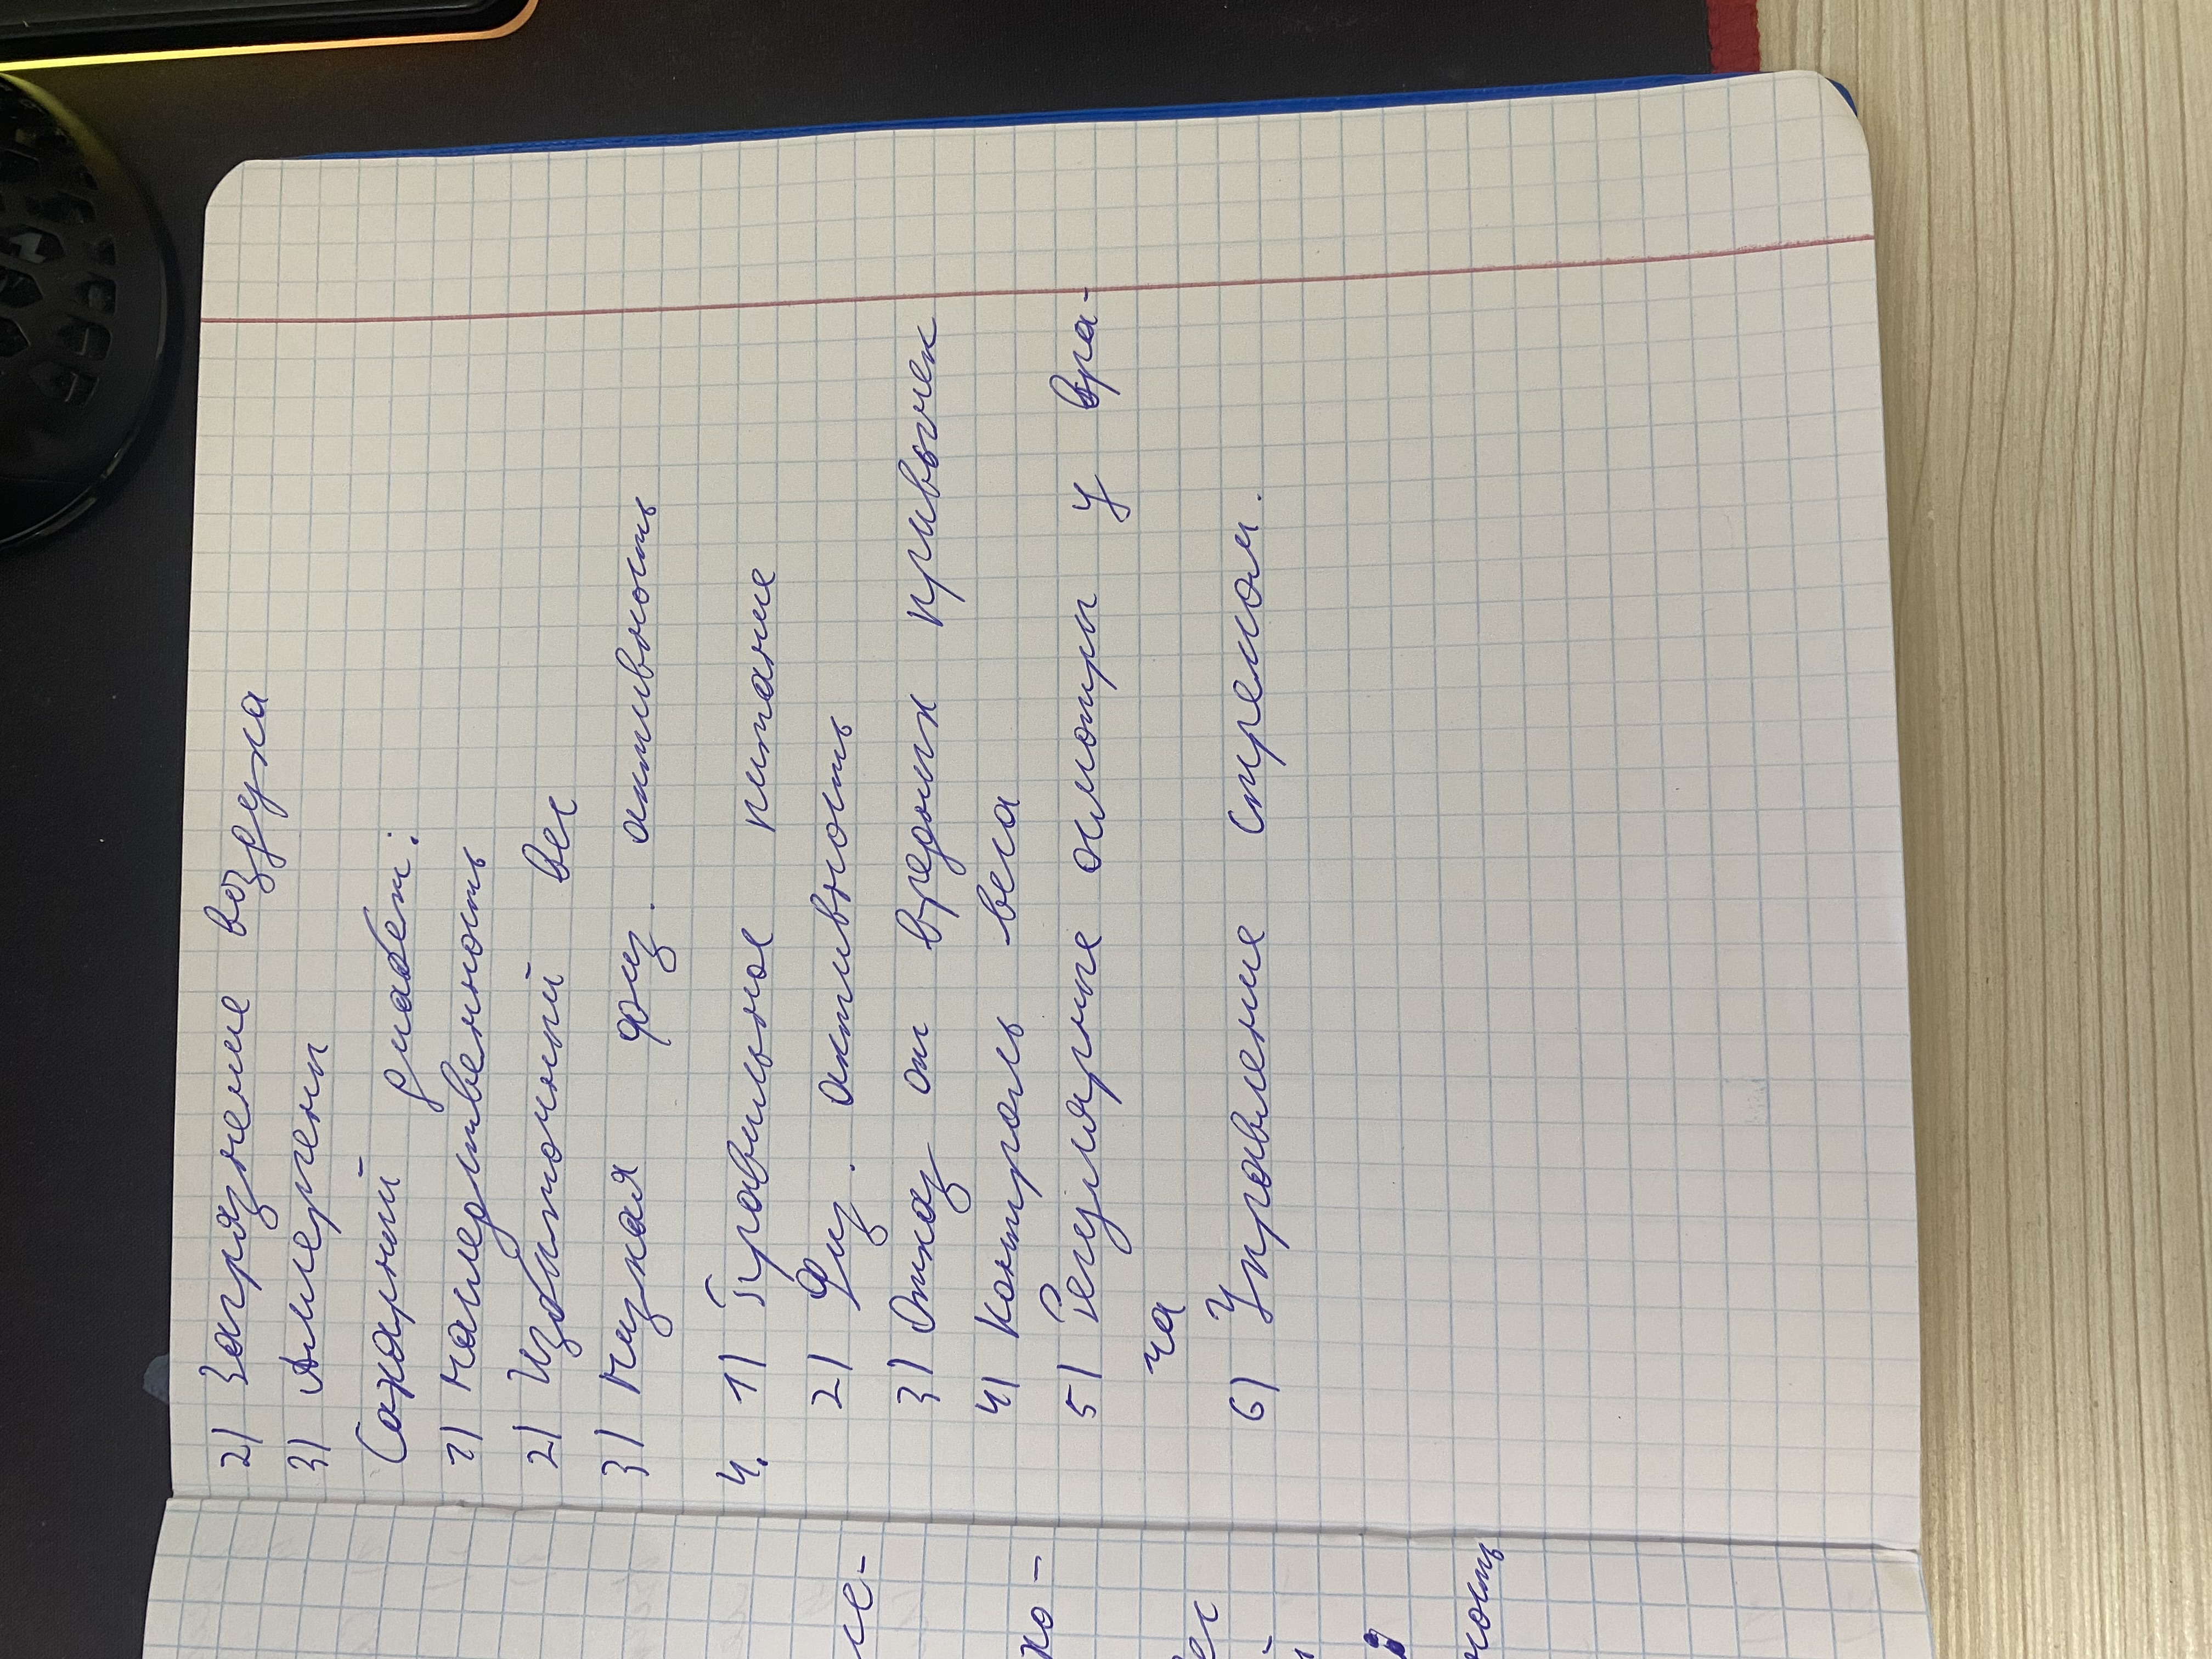 2) Загрязнение воздуха
3) Аллергены
Сахарный диабет:
1) Наследственность
2) Избыточный вес
3) Низкая физ. активность
4. 1) Правильное питание
2) Физ. активность
3) Отказ от вредных привычек
4) Контроль веса
5) Регулярные осмотры у вра-
ча
6) Управление стрессом.